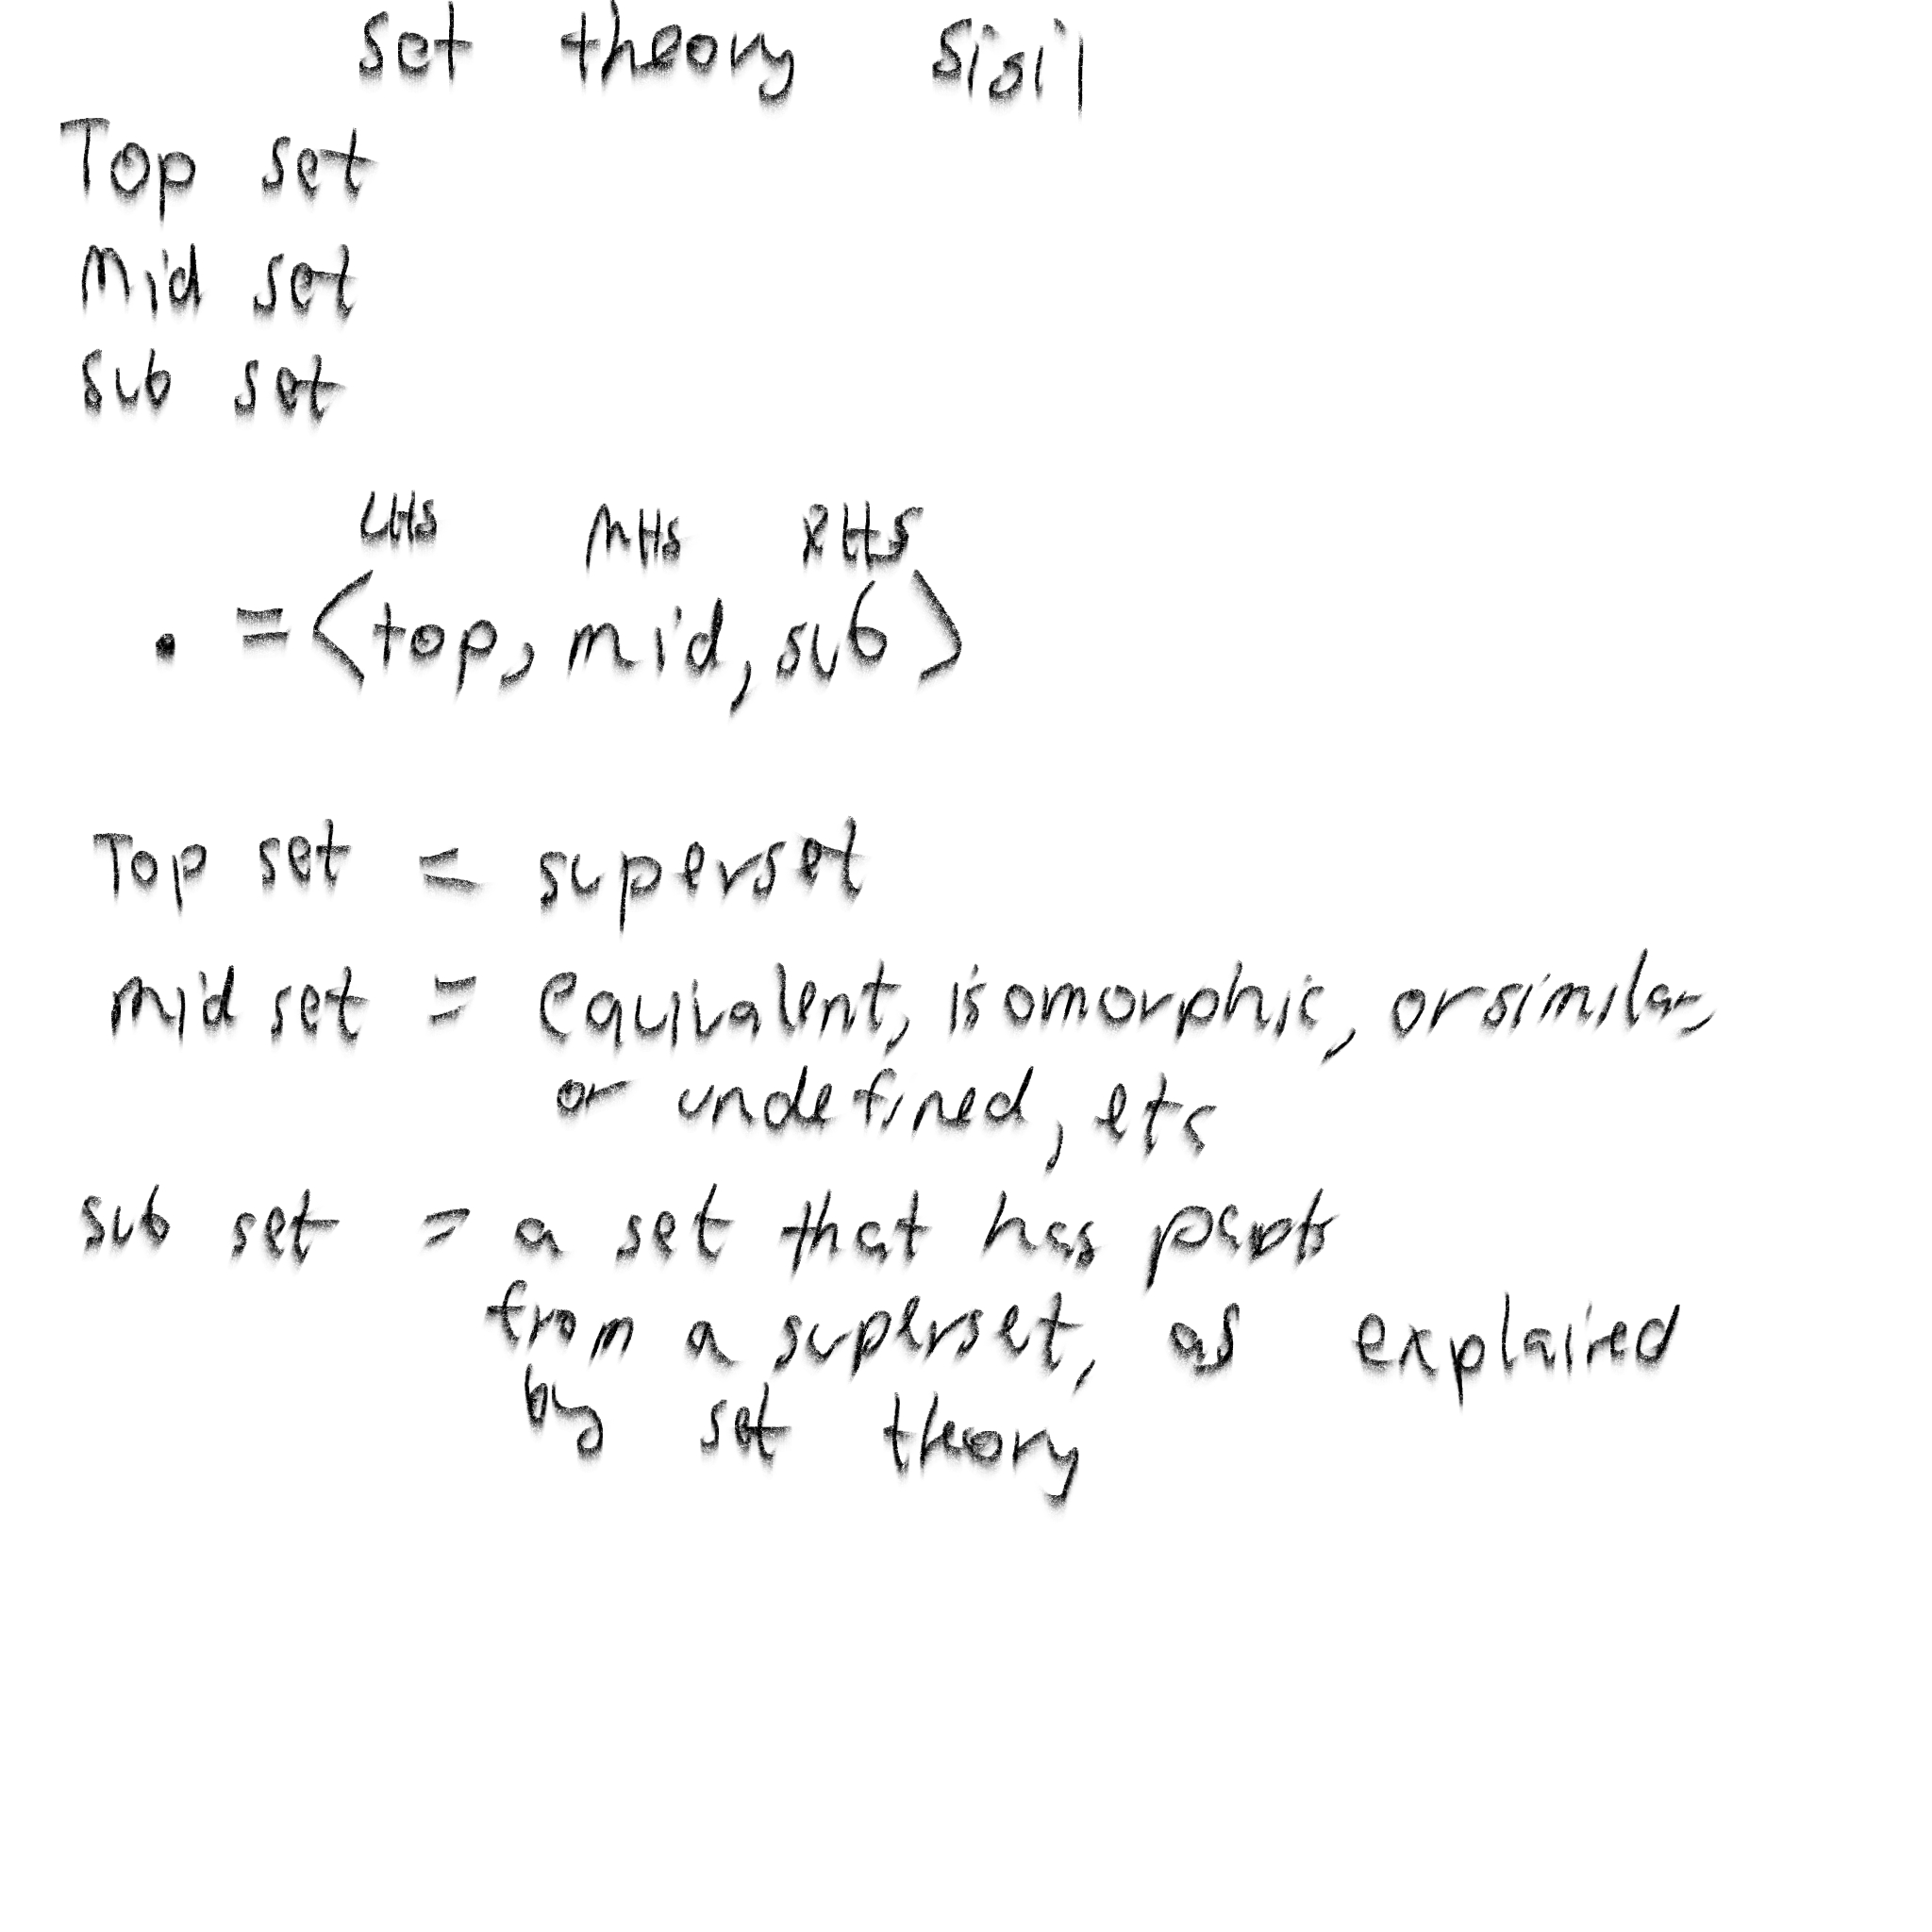 set theory sisi|
Top set
Mid set
sub set
LHS MHS RHS
. = <top, mid, sub>
Top set = superset
mid set = equivalent, isomorphic, or similar,
or undefined, etc
sub set = a set that has parts
from a superset, as explained
by set theory